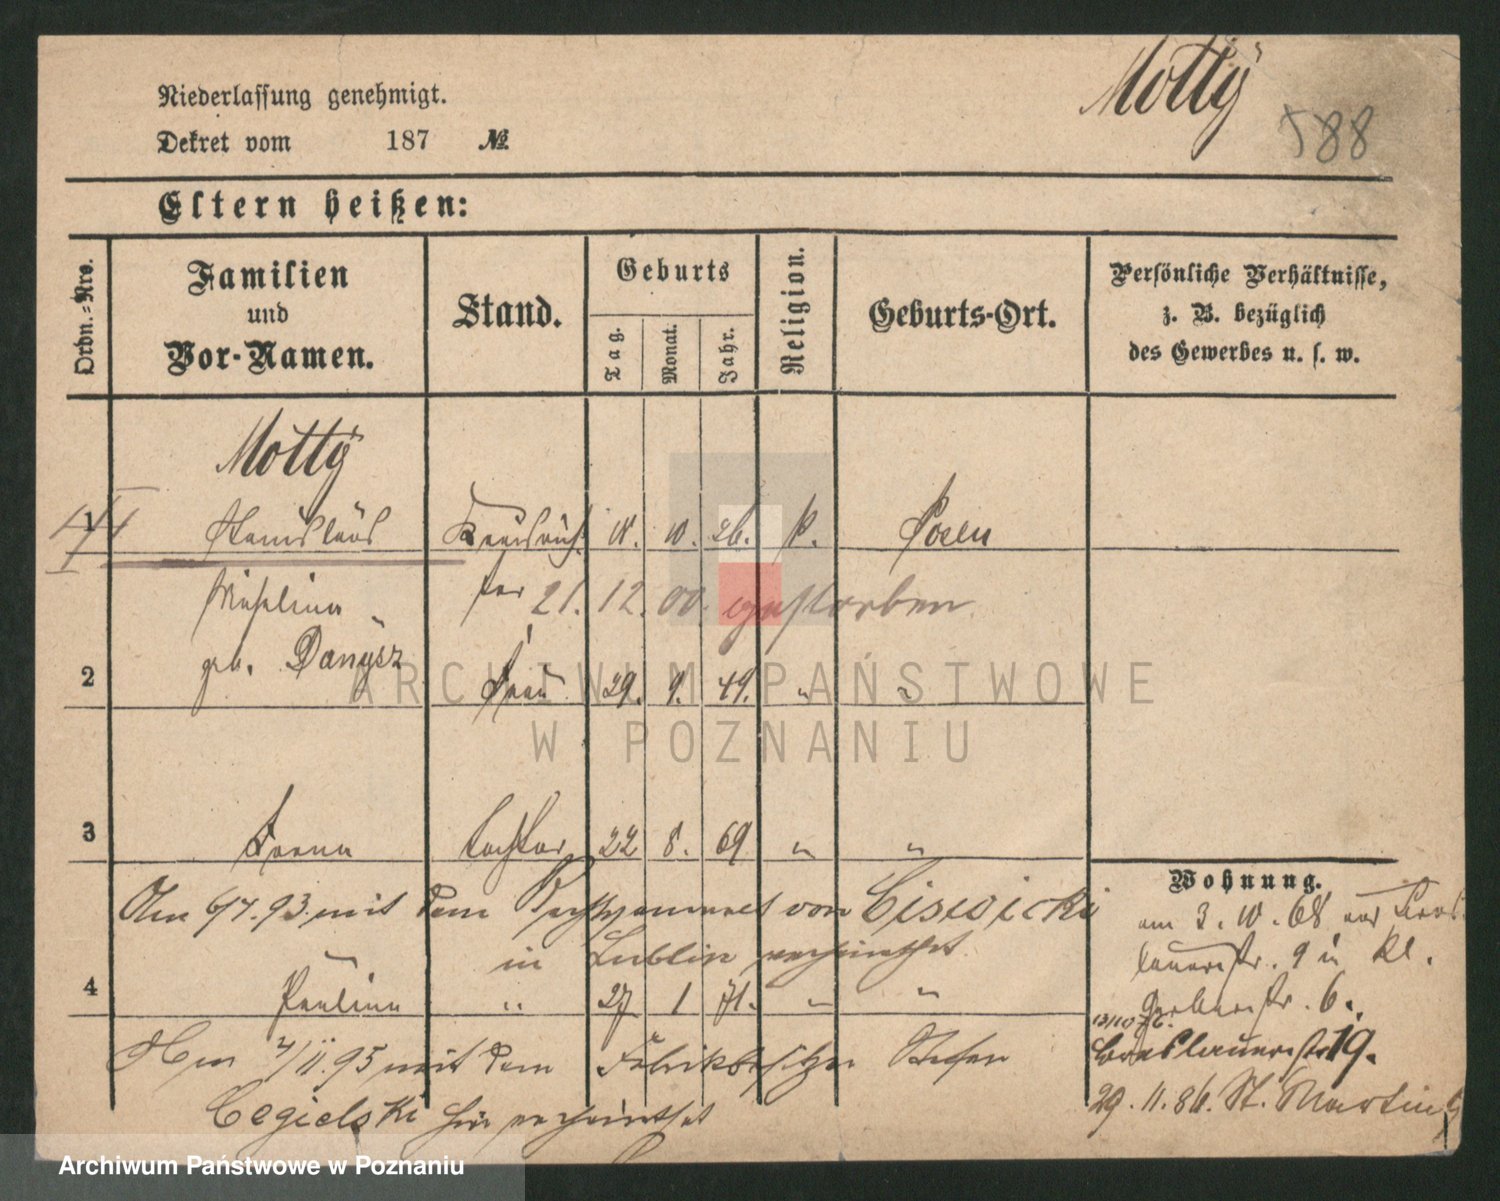 Mottÿ
588
Niederlassung genehmigt.
Dekret vom 187 №
Eltern heißen:
Ordn.-Nro.
Familien
und
Vor-Namen.
Stand.
Geburts
Tag.
Monat.
Jahr.
Religion.
Geburts-Ort.
Persönliche Verhältnisse,
z. B. bezüglich
des Gewerbes u. s. w.
Mottÿ
1 Stanislaus 10. 26. k. Posen
ter 21. 12. 00. gestorben
geb. Danÿsz
2 Frau 29. 9. 49. " "
3 Tochter 22 8. 69 " "
Wohnung.
Am 6/7. 93. mit dem von Ciswicki
in Lublin verheirathet.
am 3. 10. 68 aus
lauerstr. 9 in kl.
4 Paulina " 27 1 71. " "
Gerberstr. 6.
Am 4/11. 95 mit dem Fabrikbesitzer Stefan
Breslauerstr 19.
Cegielski hier verheirathet
29. 11. 86. St. Martin
ARCHIWUM PAŃSTWOWE
W POZNANIU
Archiwum Państwowe w Poznaniu